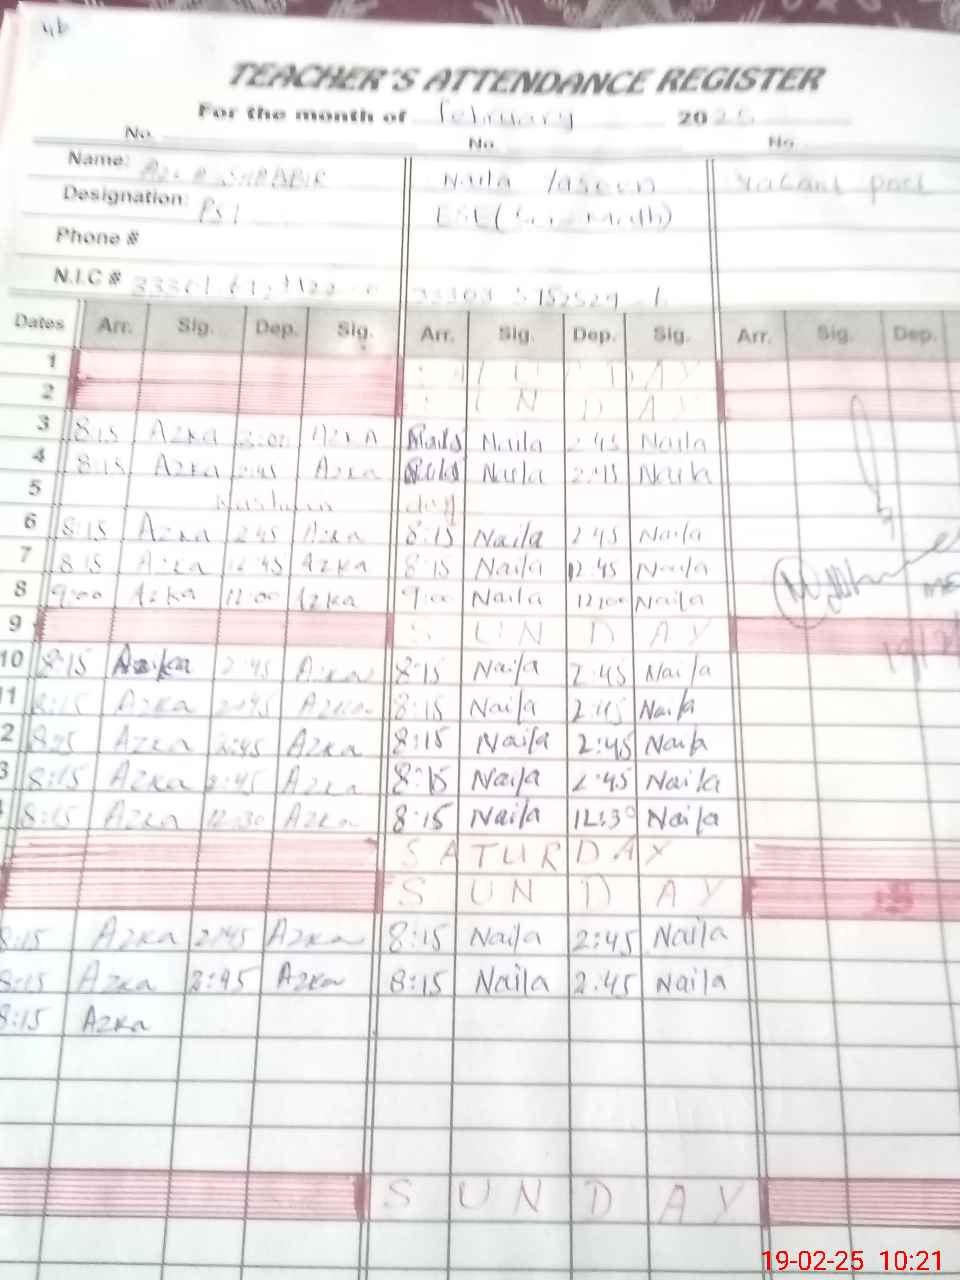 TEACHER'S ATTENDANCE REGISTER
For the month of February 2025
No. No. No.
Name: Naila Yaseen vacant post
Designation: PST ESE (Sci-Math)
Phone #
N.I.C #
Dates Arr. Sig. Dep. Sig. Arr. Sig. Dep. Sig. Arr. Sig. Dep.
1 S A T U R D A Y
2 S U N D A Y
3 8:15 Azka 2:00 Azka Naila 2:45 Naila
4 8:15 Azka 2:45 Azka Naila 2:45 Naila
5 Kashmir day
6 8:15 Azka 2:45 Azka 8:15 Naila 2:45 Naila
7 8:15 Azka 12:45 Azka 8:15 Naila 12:45 Naila
8 9:00 Azka 12:00 Azka 9:00 Naila 12:00 Naila
9 S U N D A Y
10 8:15 Azka 2:45 Azka 8:15 Naila 2:45 Naila
11 8:15 Azka 2:45 Azka 8:15 Naila 2:45 Naila
2 8:15 Azka 2:45 Azka 8:15 Naila 2:45 Naila
3 8:15 Azka 2:45 Azka 8:15 Naila 2:45 Naila
8:15 Azka 12:30 Azka 8:15 Naila 12:30 Naila
S A T U R D A Y
S U N D A Y
8:15 Azka 2:45 Azka 8:15 Naila 2:45 Naila
8:15 Azka 2:45 Azka 8:15 Naila 2:45 Naila
8:15 Azka
S U N D A Y
19-02-25 10:21